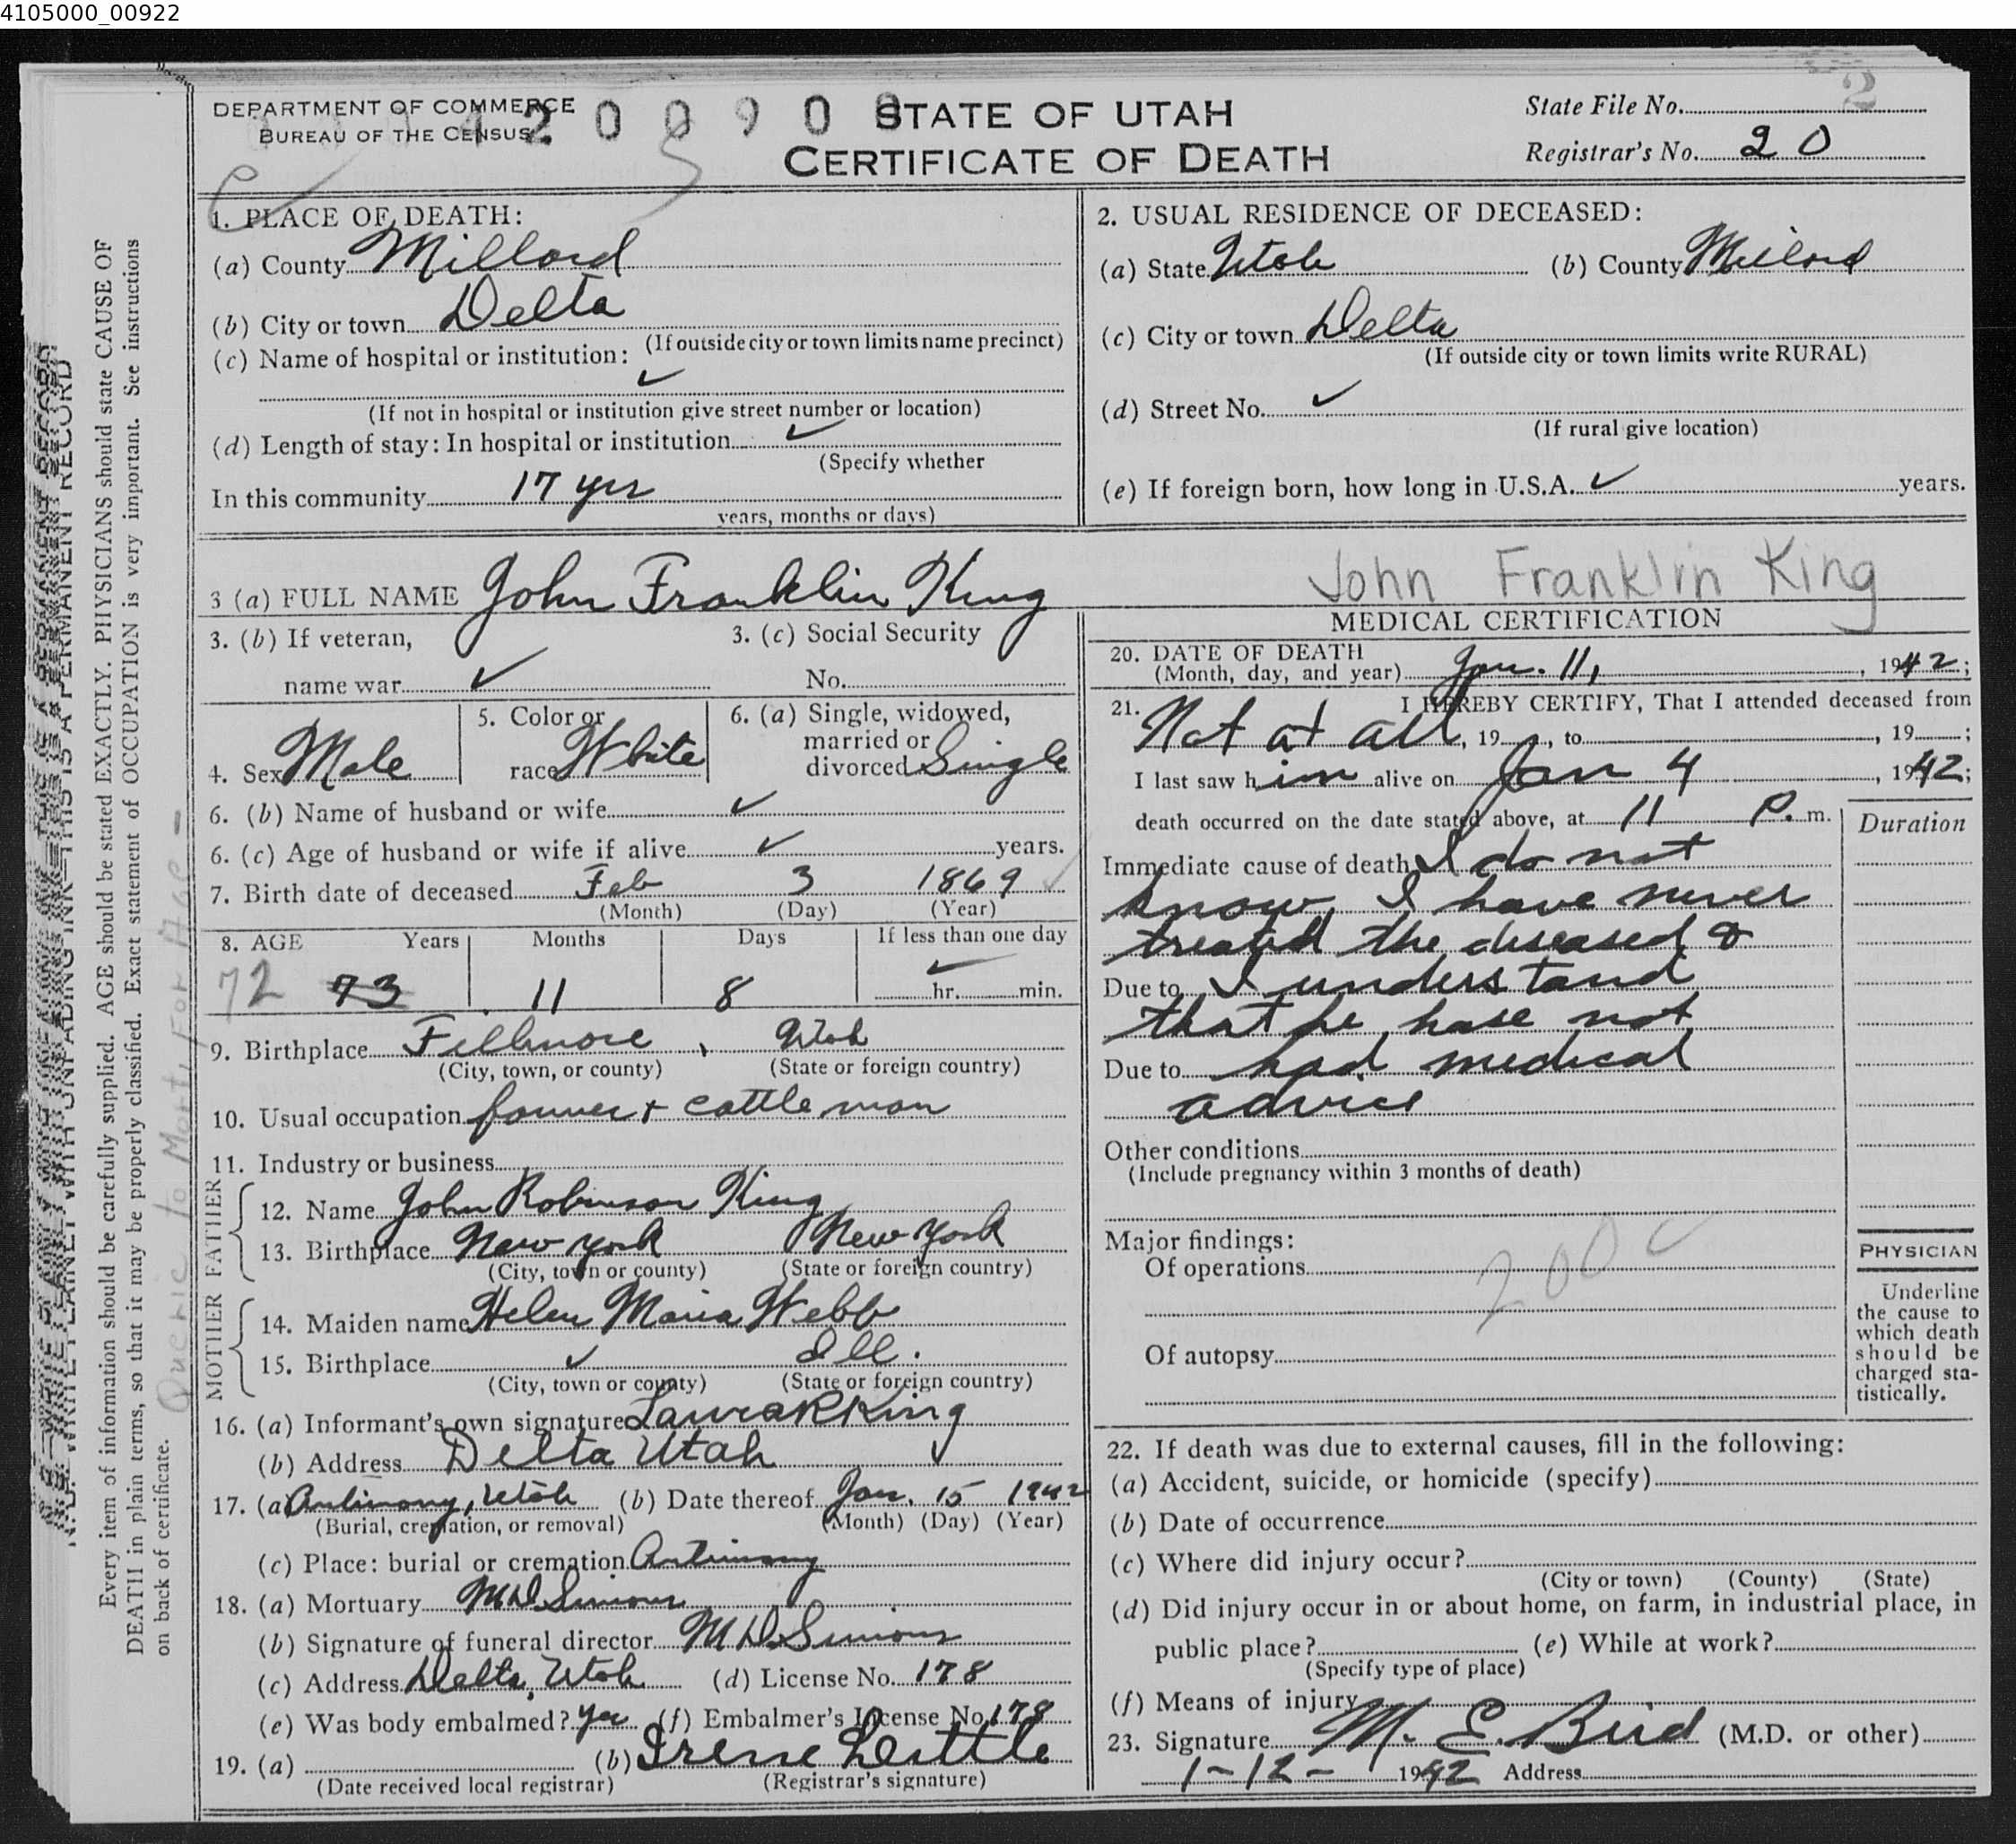 4105000_00922
DEPARTMENT OF COMMERCE
BUREAU OF THE CENSUS
4 2 0 0 9 0 8
STATE OF UTAH
CERTIFICATE OF DEATH
State File No. 2
Registrar's No. 20
1. PLACE OF DEATH:
(a) County Millard
(b) City or town Delta
(If outside city or town limits name precinct)
(c) Name of hospital or institution:
✓
(If not in hospital or institution give street number or location)
(d) Length of stay: In hospital or institution ✓
(Specify whether
In this community 17 yrs
years, months or days)
2. USUAL RESIDENCE OF DECEASED:
(a) State Utah (b) County Millard
(c) City or town Delta
(If outside city or town limits write RURAL)
(d) Street No. ✓
(If rural give location)
(e) If foreign born, how long in U.S.A. ✓ years.
3 (a) FULL NAME John Franklin King
John Franklin King
3. (b) If veteran,
name war ✓
3. (c) Social Security
No.
4. Sex Male
5. Color or
race White
6. (a) Single, widowed,
married or
divorced Single
6. (b) Name of husband or wife ✓
6. (c) Age of husband or wife if alive ✓ years.
7. Birth date of deceased Feb 3 1869 ✓
(Month) (Day) (Year)
8. AGE Years Months Days If less than one day
✓
72 73 11 8 hr. min.
9. Birthplace Fillmore, Utah
(City, town, or county) (State or foreign country)
10. Usual occupation farmer + cattle man
11. Industry or business
FATHER
12. Name John Robinson King
13. Birthplace New York New York
(City, town or county) (State or foreign country)
MOTHER
14. Maiden name Helen Maria Webb
15. Birthplace ✓ Ill.
(City, town or county) (State or foreign country)
16. (a) Informant's own signature King
(b) Address Delta Utah
17. (a) Antimony, Utah (b) Date thereof Jan. 15 1942
(Burial, cremation, or removal) (Month) (Day) (Year)
(c) Place: burial or cremation Antimony
18. (a) Mortuary M D Simons
(b) Signature of funeral director M D Simons
(c) Address Delta, Utah (d) License No. 178
(e) Was body embalmed? Yes (f) Embalmer's License No. 178
19. (a) (b) Irene Little
(Date received local registrar) (Registrar's signature)
MEDICAL CERTIFICATION
20. DATE OF DEATH
(Month, day, and year) Jan. 11, , 1942;
21. I HEREBY CERTIFY, That I attended deceased from
Not at all, 19 , to , 19 ;
I last saw him alive on Jan 4 , 1942;
death occurred on the date stated above, at 11 P. m.
Duration
Immediate cause of death I do not
know I have never
treated the diseased &
Due to I understand
that he hase not
Due to had medical
advice
Other conditions
(Include pregnancy within 3 months of death)
Major findings:
Of operations
200 c
Of autopsy
PHYSICIAN
Underline
the cause to
which death
should be
charged sta-
tistically.
22. If death was due to external causes, fill in the following:
(a) Accident, suicide, or homicide (specify)
(b) Date of occurrence
(c) Where did injury occur?
(City or town) (County) (State)
(d) Did injury occur in or about home, on farm, in industrial place, in
public place? (e) While at work?
(Specify type of place)
(f) Means of injury
23. Signature M. E. Bird (M.D. or other)
1-12- 1942 Address
N. B.—WRITE PLAINLY WITH UNFADING INK—THIS IS A PERMANENT RECORD
Every item of information should be carefully supplied. AGE should be stated EXACTLY. PHYSICIANS should state CAUSE OF
DEATH in plain terms, so that it may be properly classified. Exact statement of OCCUPATION is very important. See instructions
on back of certificate.
to Mort. For Age -